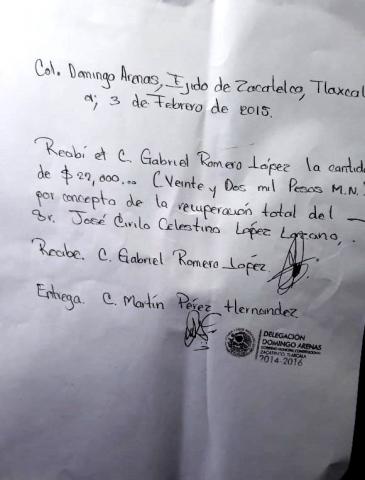 Col. Domingo Arenas, Ejido de Zacatelco, Tlaxcal
a; 3 de Febrero de 2015.
Recibí el C. Gabriel Romero López la cantida
de $22,000... (Veinte y Dos mil Pesos M.N.)
por concepto de la recuperación total del
Sr. José Cirilo Celestino López Lozano,.
Recibe. C. Gabriel Romero López.
Entrega. C. Martín Pérez Hernandez
DELEGACIÓN
DOMINGO ARENAS
ZACATELCO, TLAXCALA
2014-2016